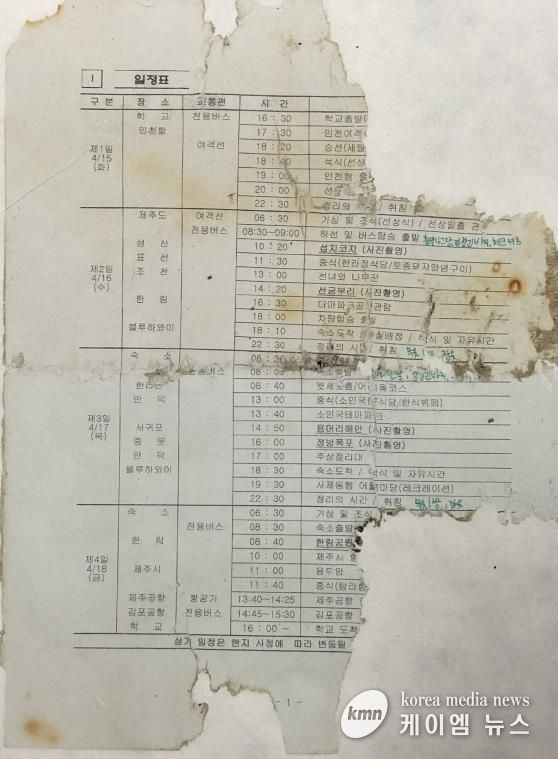 I 일정표
구 분 장 소 교통편 시 간
제1일 4/15 (화) 학 교 전용버스 16 : 30 학교출발
인천항 17 : 30 인천여객
여객선 18 : 20 승선(세월
18 : 40 석식(선상
19 : 00 인천항 출항
20 : 00 선상
22 : 30 정리의 / 취침
제2일 4/16 (수) 제주도 여객선 06 : 30 기상 및 조식(선상식) / 선상일출 관
전용버스 08:30~09:00 하선 및 버스탑승 출발
성 산 10 : 20 섭지코지 (사진촬영)
표 선 11 : 30 중식(한라정식당/토종돼지양념구이)
조 천 13 : 00 선녀와 나무꾼
14 : 20 산굼부리 (사진촬영)
한 림 16 : 30 더마파크공연관람
18 : 00 차량탑승 출발
블루하와이 18 : 10 숙소도착 / 실배정 / 석식 및 자유시간
22 : 30 정리의 시간 / 취침
제3일 4/17 (목) 숙 소 06 : 30
전용버스 08 : 00 숙소출발
한라산 08 : 40 윗세오름/어리목코스
안 덕 13 : 00 중식(소인국 식당/한식뷔페)
13 : 40 소인국테마파크
서귀포 14 : 50 용머리해안 (사진촬영)
중 문 16 : 00 정방폭포 (사진촬영)
안 덕 17 : 00 주상절리대
블루하와이 18 : 30 숙소도착 / 석식 및 자유시간
19 : 30 사제동행 어울마당(레크레이션)
22 : 30 정리의 시간 / 취침
제4일 4/18 (금) 숙 소 06 : 30 기상 및 조식
전용버스 08 : 30 숙소출발
한 림 08 : 40 한림공원
10 : 00 제주시
제주시 11 : 00 용두암
11 : 40 중식(탐라
제주공항 항공기 13:40~14:25 제주공항
김포공항 전용버스 14:45~15:30 김포공항
학 교 16 : 00 ~ 학교 도착
상기 일정은 현지 사정에 따라 변동될
- 1 -
korea media news
kmn 케이엠 뉴스